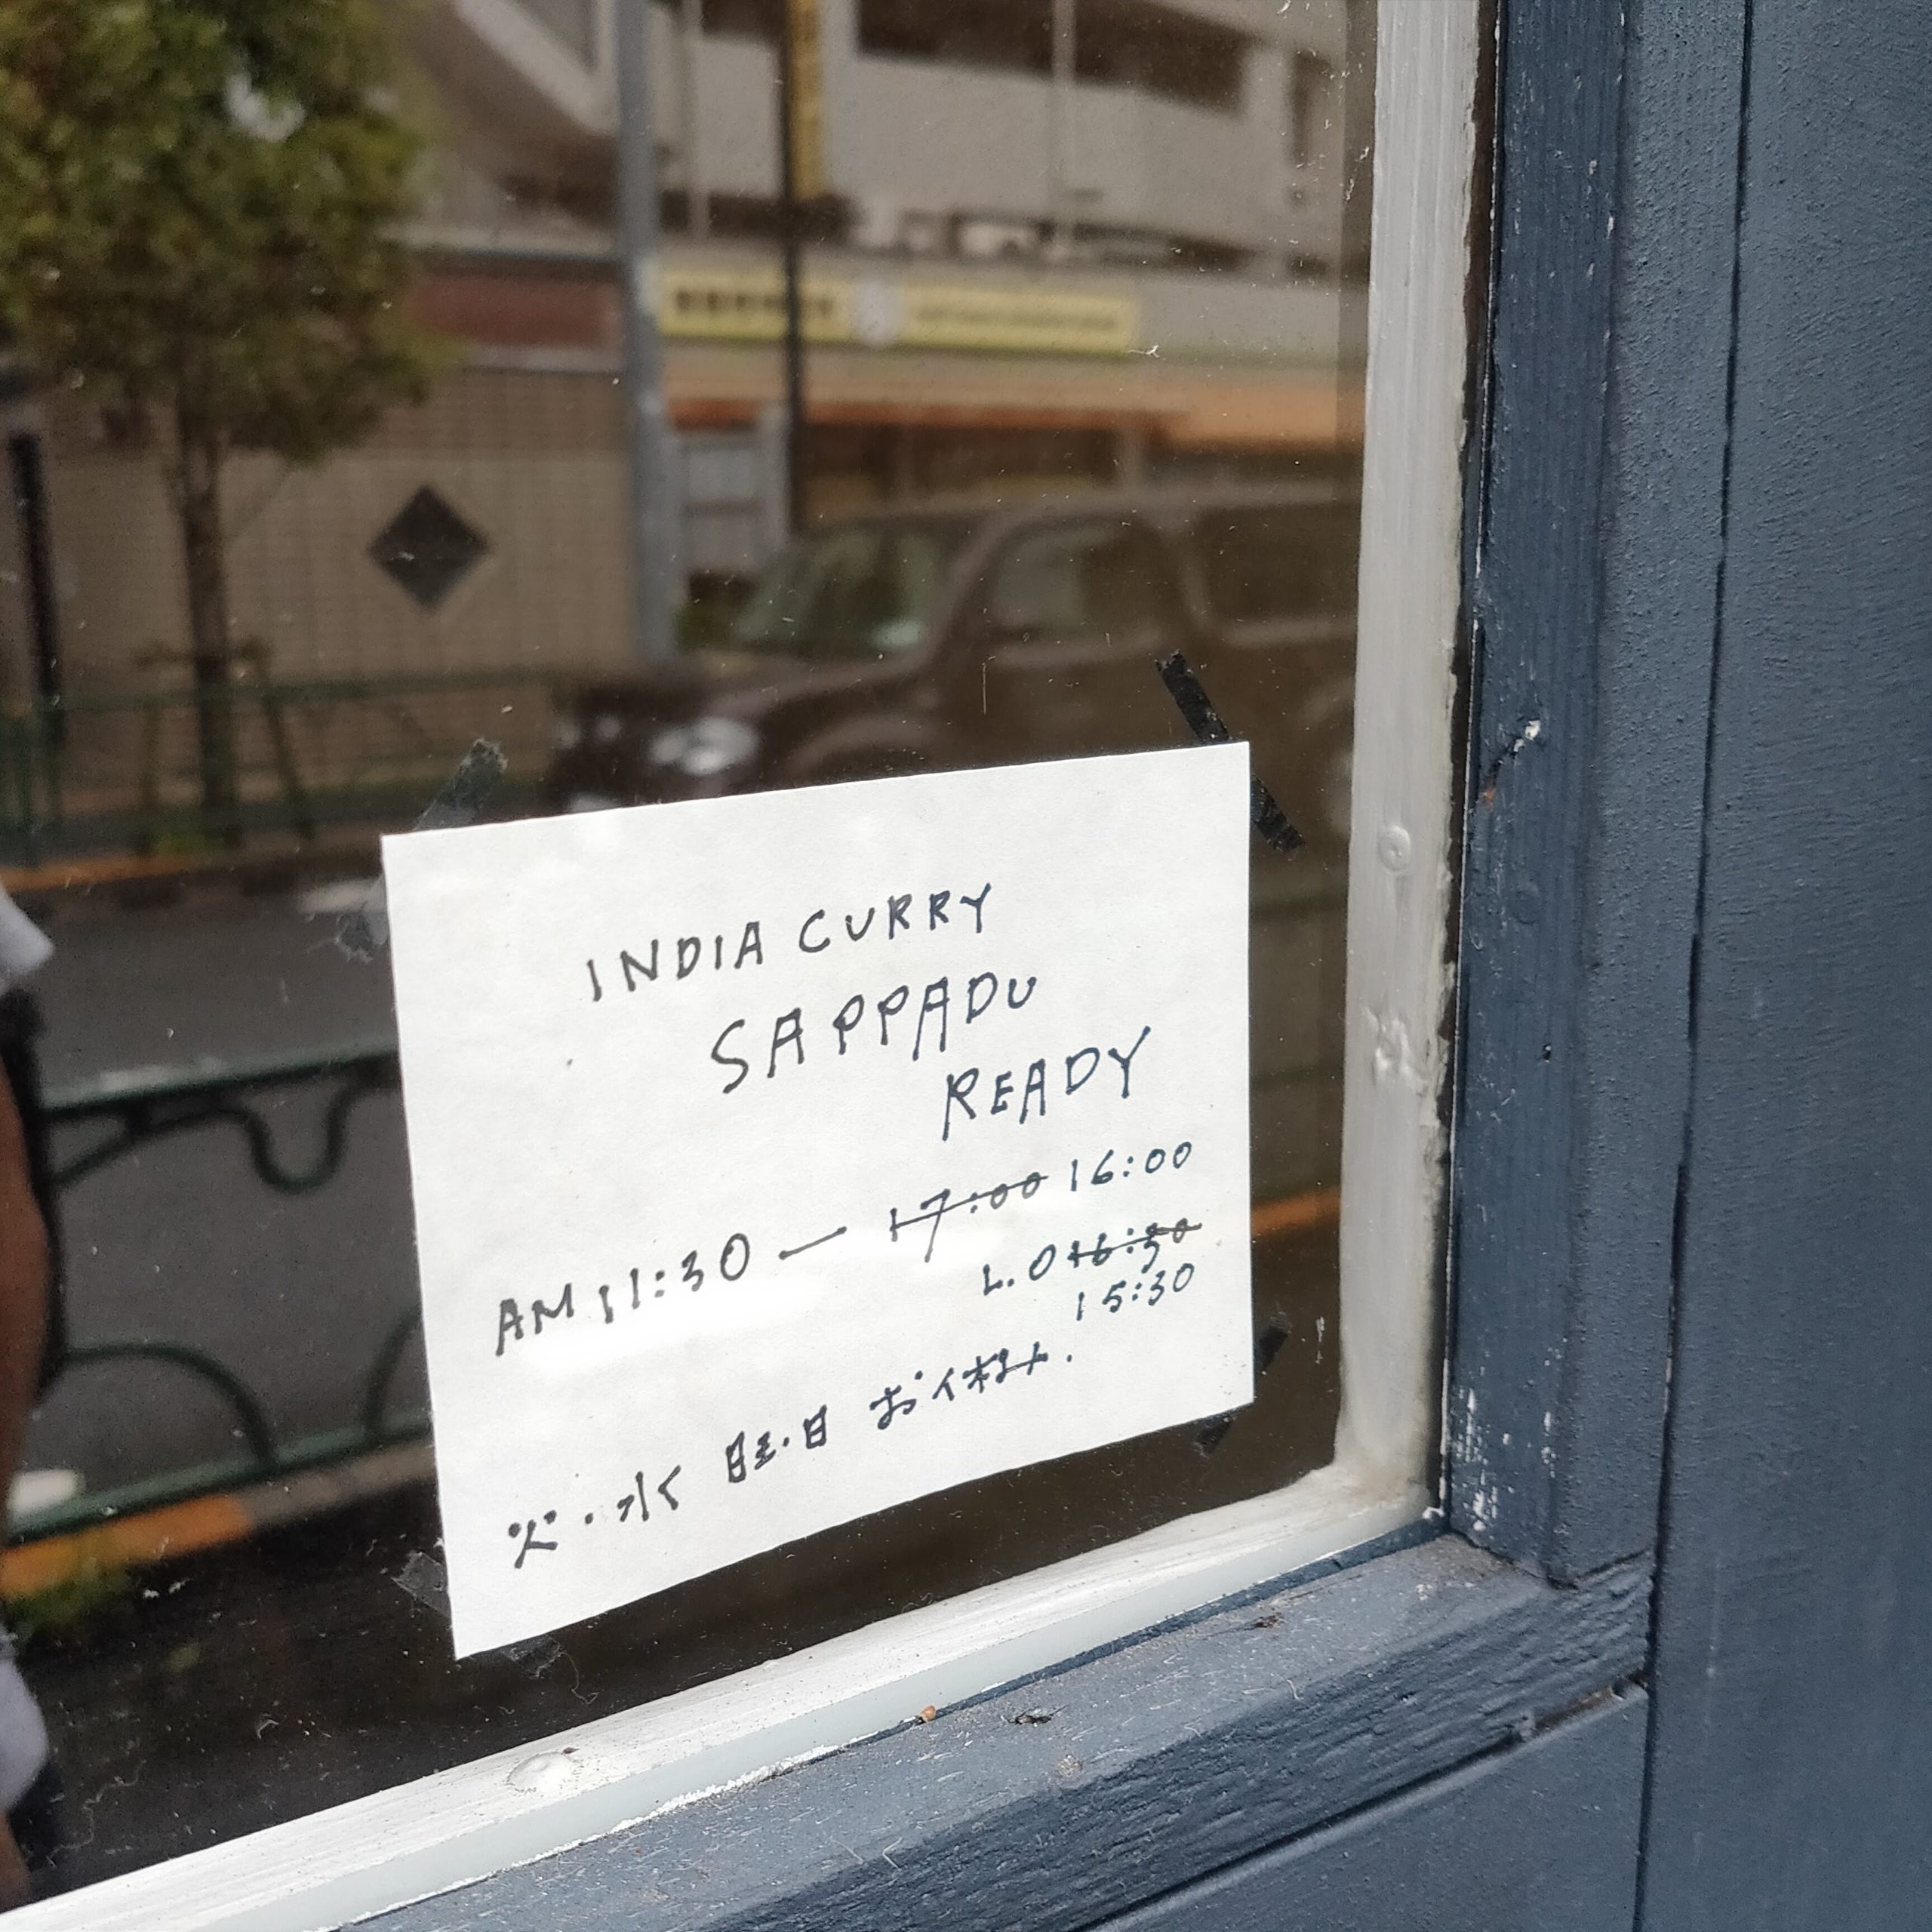 INDIA CURRY
SAPPADU
READY
AM 11:30 — 17:00 16:00
L.O 16:30
15:30
火・水 曜・日 お休み.